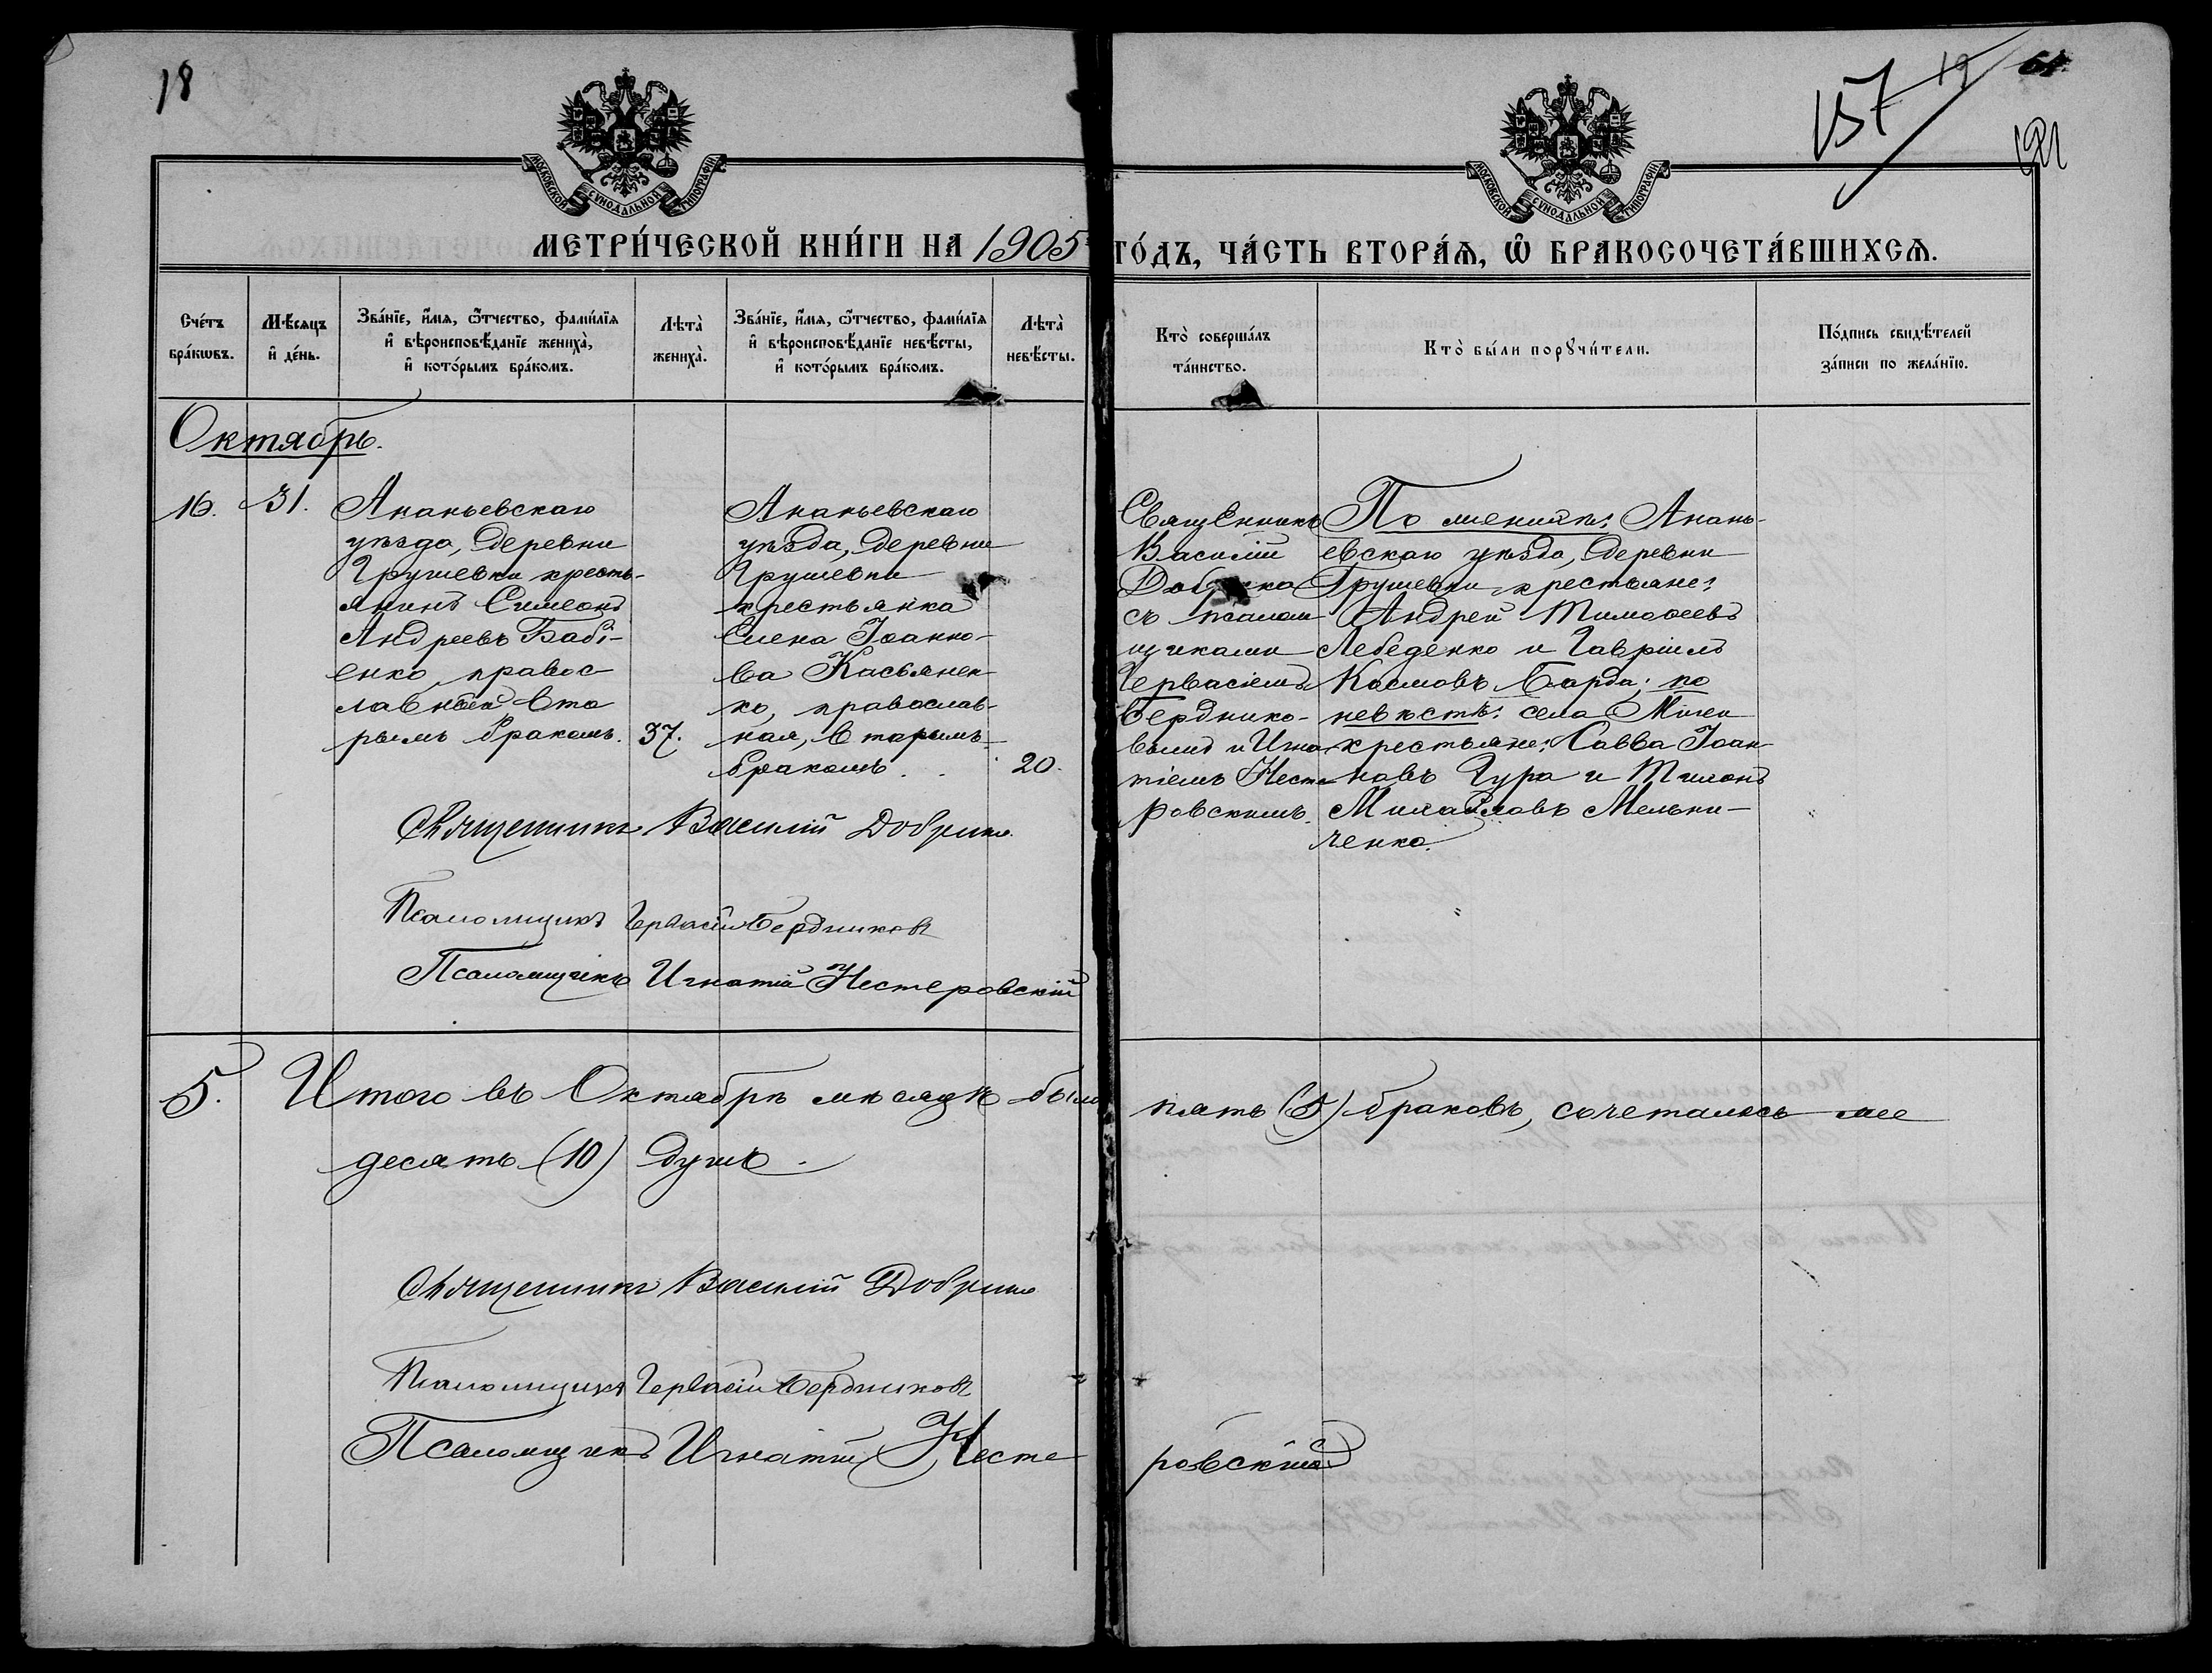 18
157
19
МОСКОВСКОЙ СУНОДАЛЬНОЙ ТИПОГРАФІИ
МОСКОВСКОЙ СУНОДАЛЬНОЙ ТИПОГРАФІИ
МЕТРИ́ЧЕСКОЙ КНИ́ГИ НА 1905 ГО́ДЪ, ЧА́СТЬ ВТОРА́Ѧ, Ѡ҆ БРАКОСОЧЕТА́ВШИХСѦ.
Сче́тъ бра́кѡвъ.
Мѣ́сяцъ и҆ де́нь.
Зва́нїе, и҆́мя, ѻ҆́тчество, фами́лїя и҆ вѣроисповѣ́данїе жениха̀, и҆ кото́рымъ бра́комъ.
Лѣ́та̀ жениха̀.
Зва́нїе, и҆́мя, ѻ҆́тчество, фами́лїя и҆ вѣроисповѣ́данїе невѣ́сты, и҆ кото́рымъ бра́комъ.
Лѣ́та̀ невѣ́сты.
Кто̀ соверша́лъ та́инство.
Кто̀ бы́ли порꙋчи́тели.
По́дпись свидѣ́телей за́писи по жела́нїю.
Октябрь.
16.
31.
Ананьевскаго
уѣзда, деревни
Грушевки кресть-
янинъ Симеонъ
Андреевъ Бабі-
енко, правос
лавный вто
рымъ бракомъ.
37.
Ананьевскаго
уѣзда, деревни
Грушевки
крестьянка
Елена Іоанно-
ва Касьянен-
ко, православ-
ная, вторымъ
бракомъ.
20.
Священникъ
Василій
съ псалом
щиками
Гервасіемъ
Берднико-
вымъ и Игна
тіемъ Несте
ровскимъ.
По женихѣ: Анань-
евскаго уѣзда, деревни
Грушевки крестьяне:
Андрей Тимоѳеевъ
Лебеденко и Гавріилъ
Космовъ Барда; по
невѣстѣ: села Мигеи
крестьяне: Савва Іоан-
новъ Гура и Тихонъ
Михайловъ Мельни-
ченко.
Священникъ Василій
Псаломщикъ Гервасій Бердниковъ
Псаломщикъ Игнатій Нестеровскій
5. Итого въ Октябрѣ мѣсяцѣ было пять (5) браковъ, сочеталось ими
десять (10) душъ.
Священникъ Василій
Псаломщикъ Гервасій Бердниковъ
Псаломщикъ Игнатій Нестеровскій